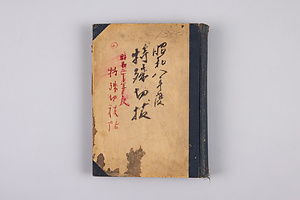 昭和八年度
特殊切抜
昭和二十年度
特殊切抜帖